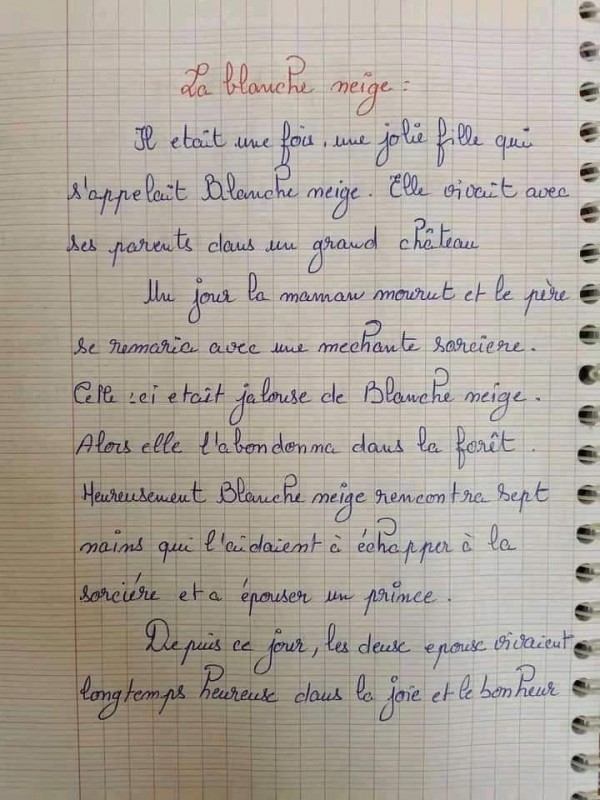 La blanche neige :
Il etait une fois, une jolie fille qui
s'appelait Blanche neige. Elle vivait avec
ses parents dans un grand château
Un jour la maman mourut et le père
se remaria avec une mechante sorciere.
Celle-ci etait jalouse de Blanche neige.
Alors elle l'abondonna dans la forêt.
Heureusement Blanche neige rencontra sept
nains qui l'aidaient à échapper à la
sorciére et a épouser un prince.
Depuis ce jour, les deux epoux vivaient
longtemps heureux dans la joie et le bonheur